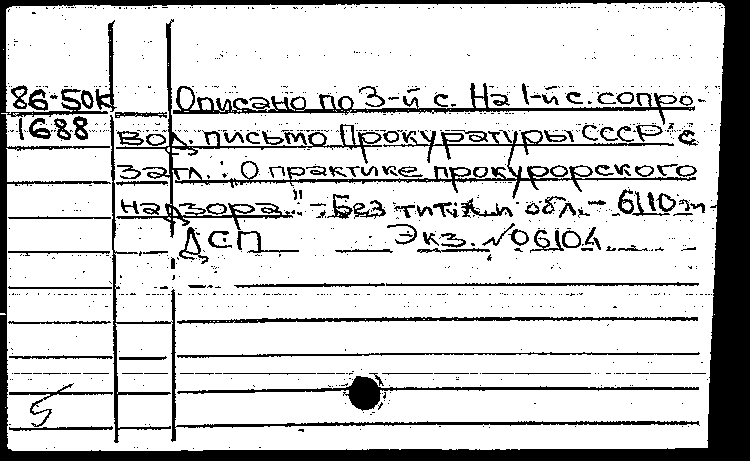 86-50К Описано по 3-й с. На 1-й с. сопро-
1688 вод. письмо Прокуратуры СССР с
загл.: „О практике прокурорского
надзора." - Без тит. л. и обл. - 6110 т
ДСП Экз. №06104
5